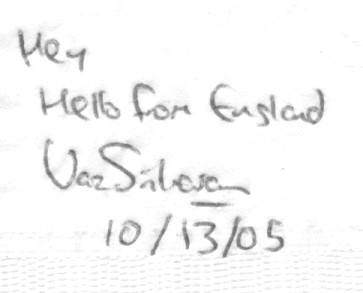 Hey
Hello from England
Vaz
10/13/05